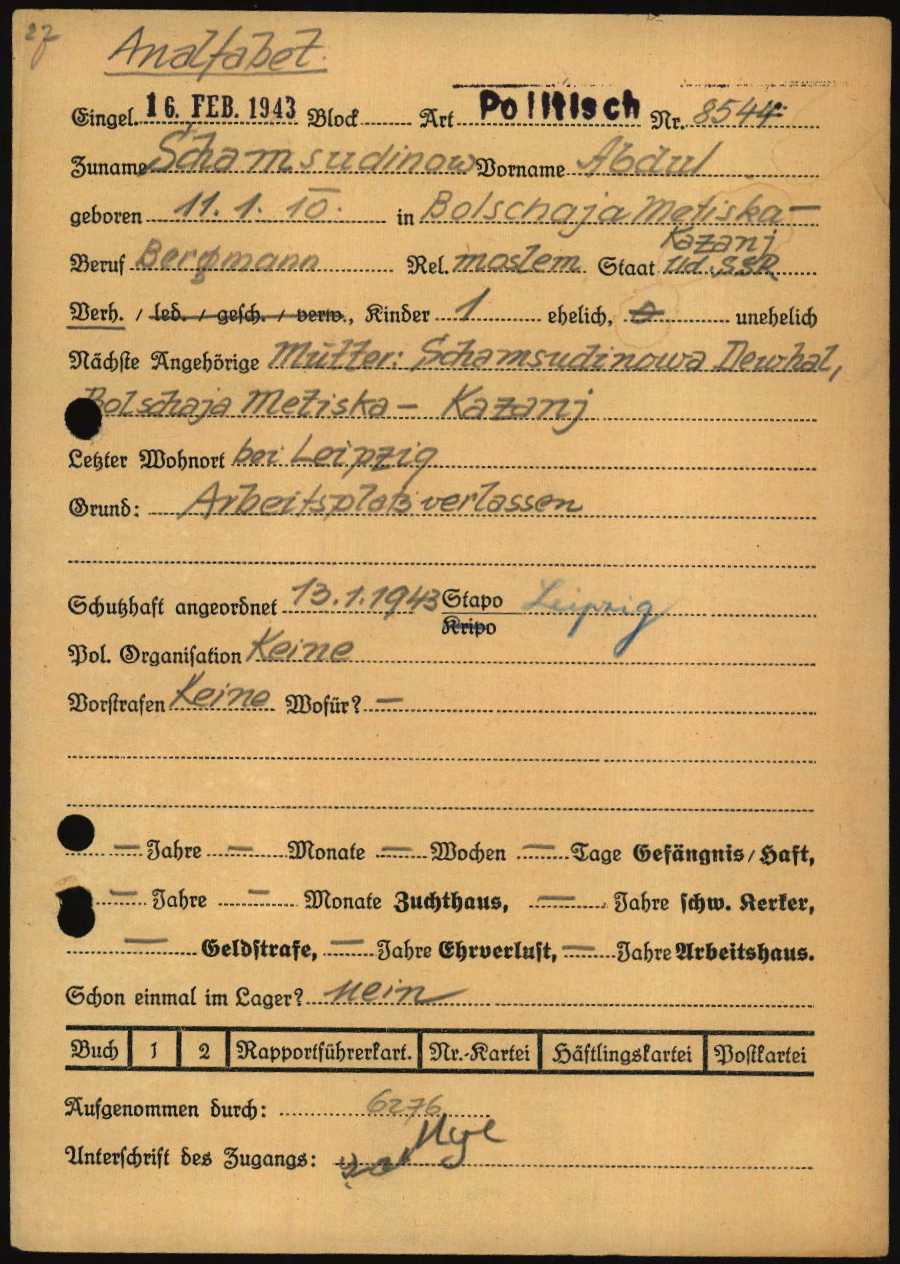 27
Analfabet.
Eingel. 16. FEB. 1943 Block Art Politisch Nr. 8544
Zuname Schamsudinow Vorname Abdul
geboren 11. 1. 10. in Bolschaja Metiska—
Kazanj
Beruf Bergmann Rel. moslem Staat Ud.SSR
Verh. / led. / gesch. / verw., Kinder 1 ehelich, 0 unehelich
Nächste Angehörige Mutter: Schamsudinowa Dewhal,
Bolschaja Metiska — Kazanj
Letzter Wohnort bei Leipzig
Grund: Arbeitsplatz verlassen
Schutzhaft angeordnet 13.1.1943 Stapo Leipzig
Kripo
Pol. Organisation Keine
Vorstrafen Keine Wofür? —
— Jahre — Monate — Wochen — Tage Gefängnis/Haft,
— Jahre — Monate Zuchthaus, — Jahre schw. Kerker,
— Geldstrafe, — Jahre Ehrverlust, — Jahre Arbeitshaus.
Schon einmal im Lager? nein
Buch 1 2 Rapportführerkart. Nr.-Kartei Häftlingskartei Postkartei
Aufgenommen durch: 6276
Unterschrift des Zugangs: